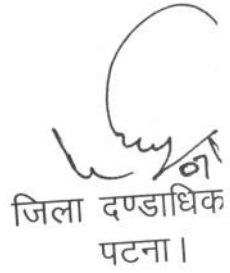 जिला दण्डाधिक
पटना।